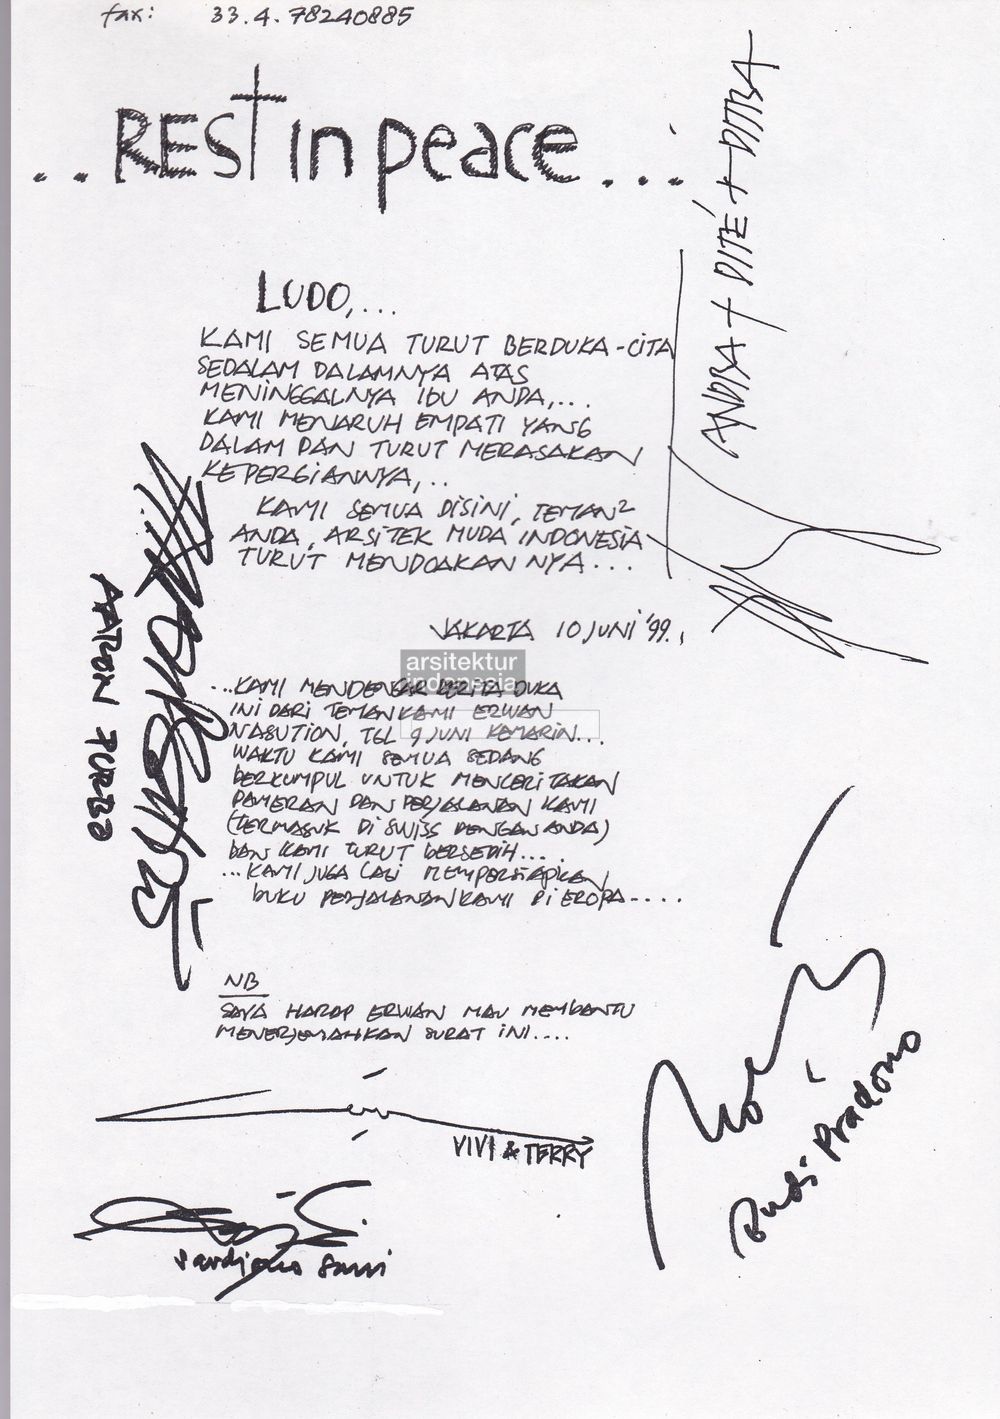 fax: 33.4.78240885
..REST in peace...
LUDO,...
KAMI SEMUA TURUT BERDUKA-CITA
SEDALAM DALAMNYA ATAS
MENINGGALNYA IBU ANDA,...
KAMI MENARUH EMPATI YANG
DALAM DAN TURUT MERASAKAN
KEPERGIANNYA,..
KAMI SEMUA DISINI, TEMAN2
ANDA, ARSITEK MUDA INDONESIA
TURUT MENDOAKAN NYA...
JAKARTA 10 JUNI '99.,
arsitektur
indonesia
...KAMI MENDENGAR BERITA DUKA
INI DARI TEMAN KAMI ERWAN
NASUTION, TGL 9 JUNI KEMARIN...
WAKTU KAMI SEMUA SEDANG
BERKUMPUL UNTUK MENCERITAKAN
PAMERAN DAN PERJALANAN KAMI
(TERMASUK DI SWISS DENGAN ANDA)
DAN KAMI TURUT BERSEDIH...
...KAMI JUGA LAGI MEMPERSIAPKAN
BUKU PERJALANAN KAMI DI EROPA----
NB
SAYA HARAP ERWAN MAU MEMBANTU
MENERJEMAHKAN SURAT INI....
ANDRA + DITÉ + DITRA
VIVI & TERRY
sardjono sani
Budi Pradono